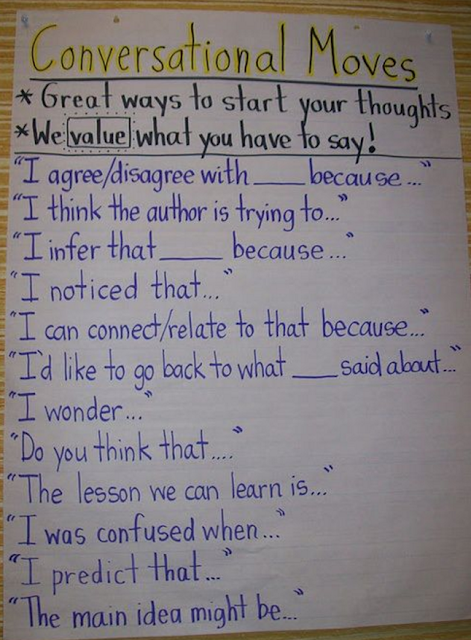 Conversational Moves
* Great ways to start your thoughts
* We value what you have to say!
"I agree/disagree with ____ because..."
"I think the author is trying to..."
"I infer that ____ because..."
"I noticed that..."
"I can connect/relate to that because..."
"I'd like to go back to what ____ said about..."
"I wonder..."
"Do you think that...."
"The lesson we can learn is..."
"I was confused when..."
"I predict that..."
"The main idea might be..."